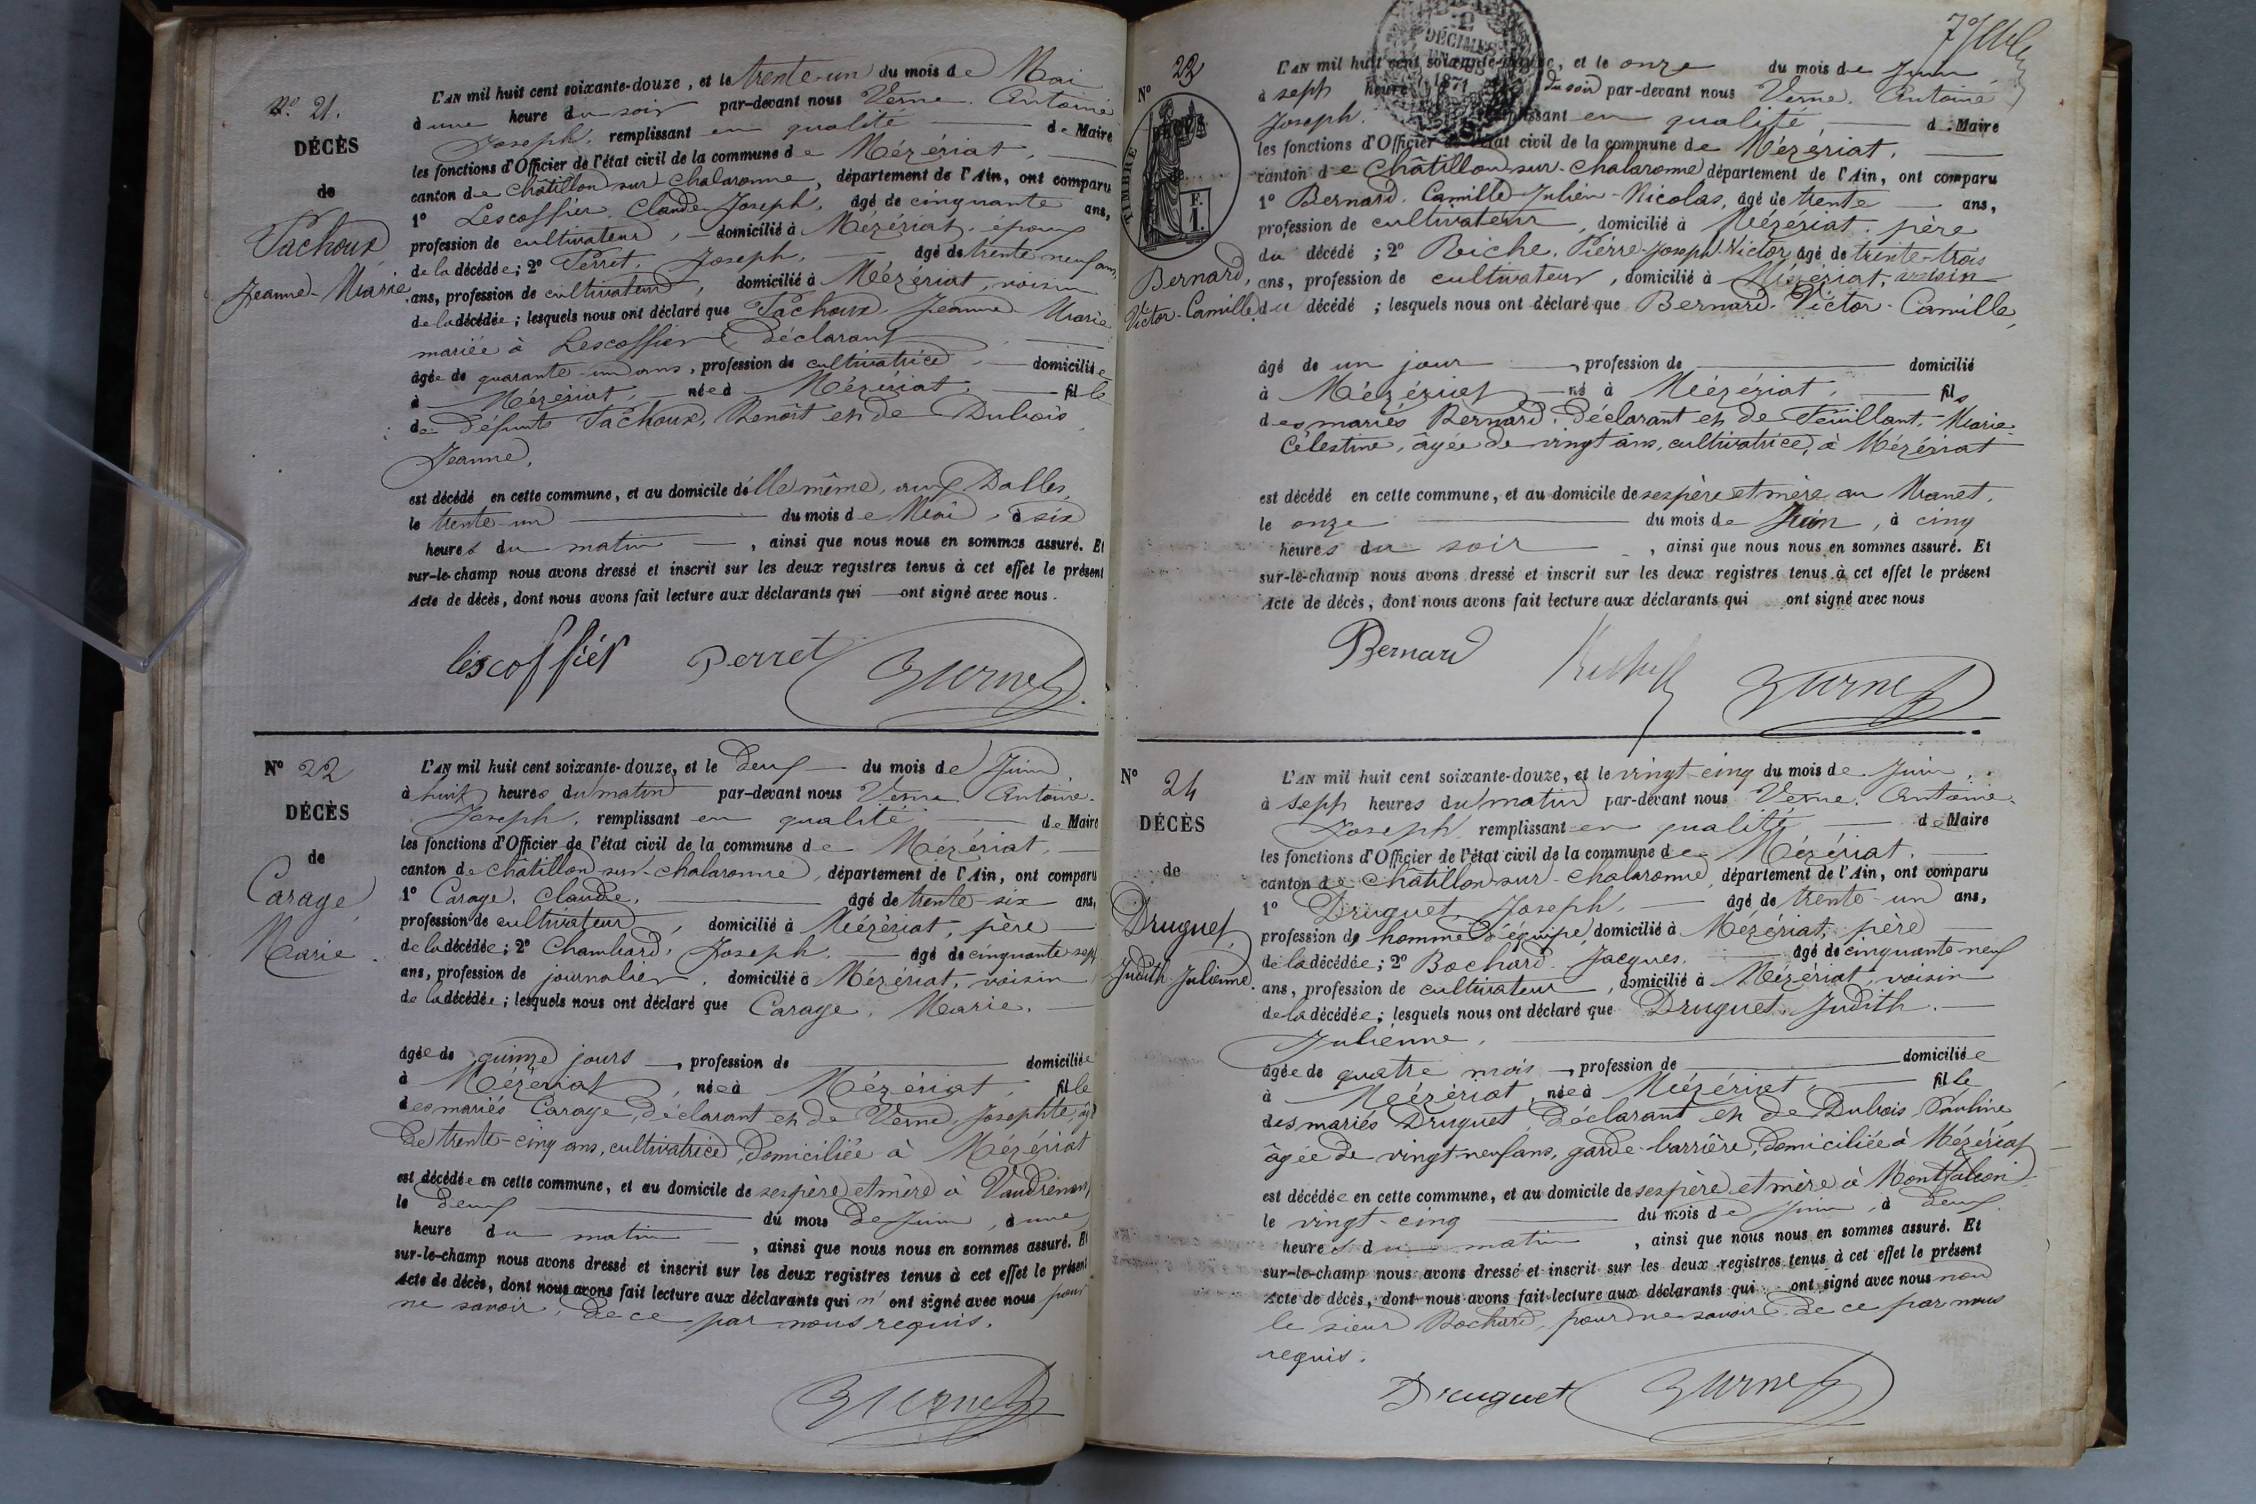 N° 21.
DÉCÈS
de
Pachoux
Jeanne-Marie
L'AN mil huit cent soixante-douze, et le trente-un du mois de Mai
à une heure du soir par-devant nous Verne, Antoine
Joseph, remplissant en qualité de Maire
les fonctions d'Officier de l'état civil de la commune de Mézériat,
canton de Châtillon sur Chalaronne, département de l'Ain, ont comparu
1° Lescoffier, Claude Joseph, âgé de cinquante ans,
profession de cultivateur, domicilié à Mézériat, époux
de la décédée; 2° Perret Joseph, âgé de trente neuf ans,
ans, profession de cultivateur, domicilié à Mézériat, voisin
de la décédée; lesquels nous ont déclaré que Pachoux, Jeanne-Marie
mariée à Lescoffier déclarant
âgée de quarante-un ans, profession de cultivatrice, domiciliée
à Mézériat, née à Mézériat, fille
de défunts Pachoux, Benoît et de Dubois,
Jeanne,
est décédé en cette commune, et au domicile d'elle même, aux Dalles,
le trente-un du mois de Mai, à six
heures du matin, ainsi que nous nous en sommes assuré. Et
sur-le-champ nous avons dressé et inscrit sur les deux registres tenus à cet effet le présent
Acte de décès, dont nous avons fait lecture aux déclarants qui ont signé avec nous.
lescoffier Perret Verne
N° 22
DÉCÈS
de
Carage,
Marie.
L'AN mil huit cent soixante-douze, et le deux du mois de Juin,
à huit heures du matin par-devant nous Verne Antoine-
Joseph, remplissant en qualité de Maire
les fonctions d'Officier de l'état civil de la commune de Mézériat,
canton de Châtillon sur-Chalaronne, département de l'Ain, ont comparu
1° Carage, Claude, âgé de trente-six ans,
profession de cultivateur, domicilié à Mézériat, père
de la décédée; 2° Chambard, Joseph, âgé de cinquante sept
ans, profession de journalier, domicilié à Mézériat, voisin
de la décédée; lesquels nous ont déclaré que Carage, Marie,
âgée de quinze jours, profession de domiciliée
à Mézériat, née à Mézériat, fille
des mariés Carage, déclarant et de Verne, Josephte, âgée
de trente-cinq ans, cultivatrice, domiciliée à Mézériat
est décédée en cette commune, et au domicile de ses père et mère à
le deux du mois de Juin, à une
heure du matin, ainsi que nous nous en sommes assuré. Et
sur-le-champ nous avons dressé et inscrit sur les deux registres tenus à cet effet le présent
Acte de décès, dont nous avons fait lecture aux déclarants qui n'ont signé avec nous pour
ne savoir, de ce par nous requis.
Verne
2
DÉCIMES
1871
TIMBRE
F.
I.
N° 23
Bernard,
Victor-Camille
L'AN mil huit cent soixante-douze, et le onze du mois de Juin,
à sept heures du soir par-devant nous Verne, Antoine
Joseph, remplissant en qualité, de Maire
les fonctions d'Officier de l'état civil de la commune de Mézériat,
canton de Châtillon-sur-Chalaronne département de l'Ain, ont comparu
1° Bernard, Camille-Julien-Nicolas, âgé de trente ans,
profession de cultivateur, domicilié à Mézériat, père
du décédé; 2° Riche, Pierre-Joseph-Victor, âgé de trente-trois
ans, profession de cultivateur, domicilié à Mézériat, voisin
du décédé; lesquels nous ont déclaré que Bernard, Victor-Camille,
âgé de un jour, profession de domicilié
à Mézériat né à Mézériat, fils
des mariés Bernard, déclarant et de Feuillant, Marie
Célestine, âgée de vingt ans, cultivatrice, à Mézériat
est décédé en cette commune, et au domicile de ses père et mère au Manet,
le onze du mois de Juin, à cinq
heures du soir, ainsi que nous nous en sommes assuré. Et
sur-le-champ nous avons dressé et inscrit sur les deux registres tenus à cet effet le présent
Acte de décès, dont nous avons fait lecture aux déclarants qui ont signé avec nous
Bernard Verne
N° 24
DÉCÈS
de
Druguet,
Judith-Julienne.
L'AN mil huit cent soixante-douze, et le vingt-cinq du mois de Juin,
à sept heures du matin par-devant nous Verne, Antoine-
Joseph remplissant en qualité de Maire
les fonctions d'Officier de l'état civil de la commune de Mézériat,
canton de Châtillon-sur-Chalaronne, département de l'Ain, ont comparu
1° Druguet, Joseph, âgé de trente-un ans,
profession de homme d'équipe, domicilié à Mézériat, père
de la décédée; 2° Bochard Jacques, âgé de cinquante-neuf
ans, profession de cultivateur, domicilié à Mézériat, voisin
de la décédée; lesquels nous ont déclaré que Druguet, Judith-
Julienne,
âgée de quatre mois, profession de domiciliée
à Mézériat, née à Mézériat, fille
des mariés Druguet, déclarant et de Dubois, Pauline,
âgée de vingt-neuf ans, garde-barrière, domiciliée à Mézériat
est décédée en cette commune, et au domicile de ses père et mère à Montfalcon
le vingt-cinq du mois de Juin, à deux
heures du matin, ainsi que nous nous en sommes assuré. Et
sur-le-champ nous avons dressé et inscrit sur les deux registres tenus à cet effet le présent
Acte de décès, dont nous avons fait lecture aux déclarants qui ont signé avec nous non
le sieur Bochard, pour ne savoir, de ce par nous
requis.
Druguet Verne